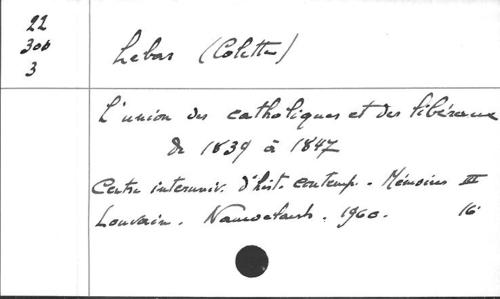 22
300
3
Lebas (Colette)
L'union des catholiques et des libéraux
de 1839 à 1847
Centre interuniv. d'hist. contemp. - Mémoires III
Louvain. Nauwelaerts. 1960. 16°